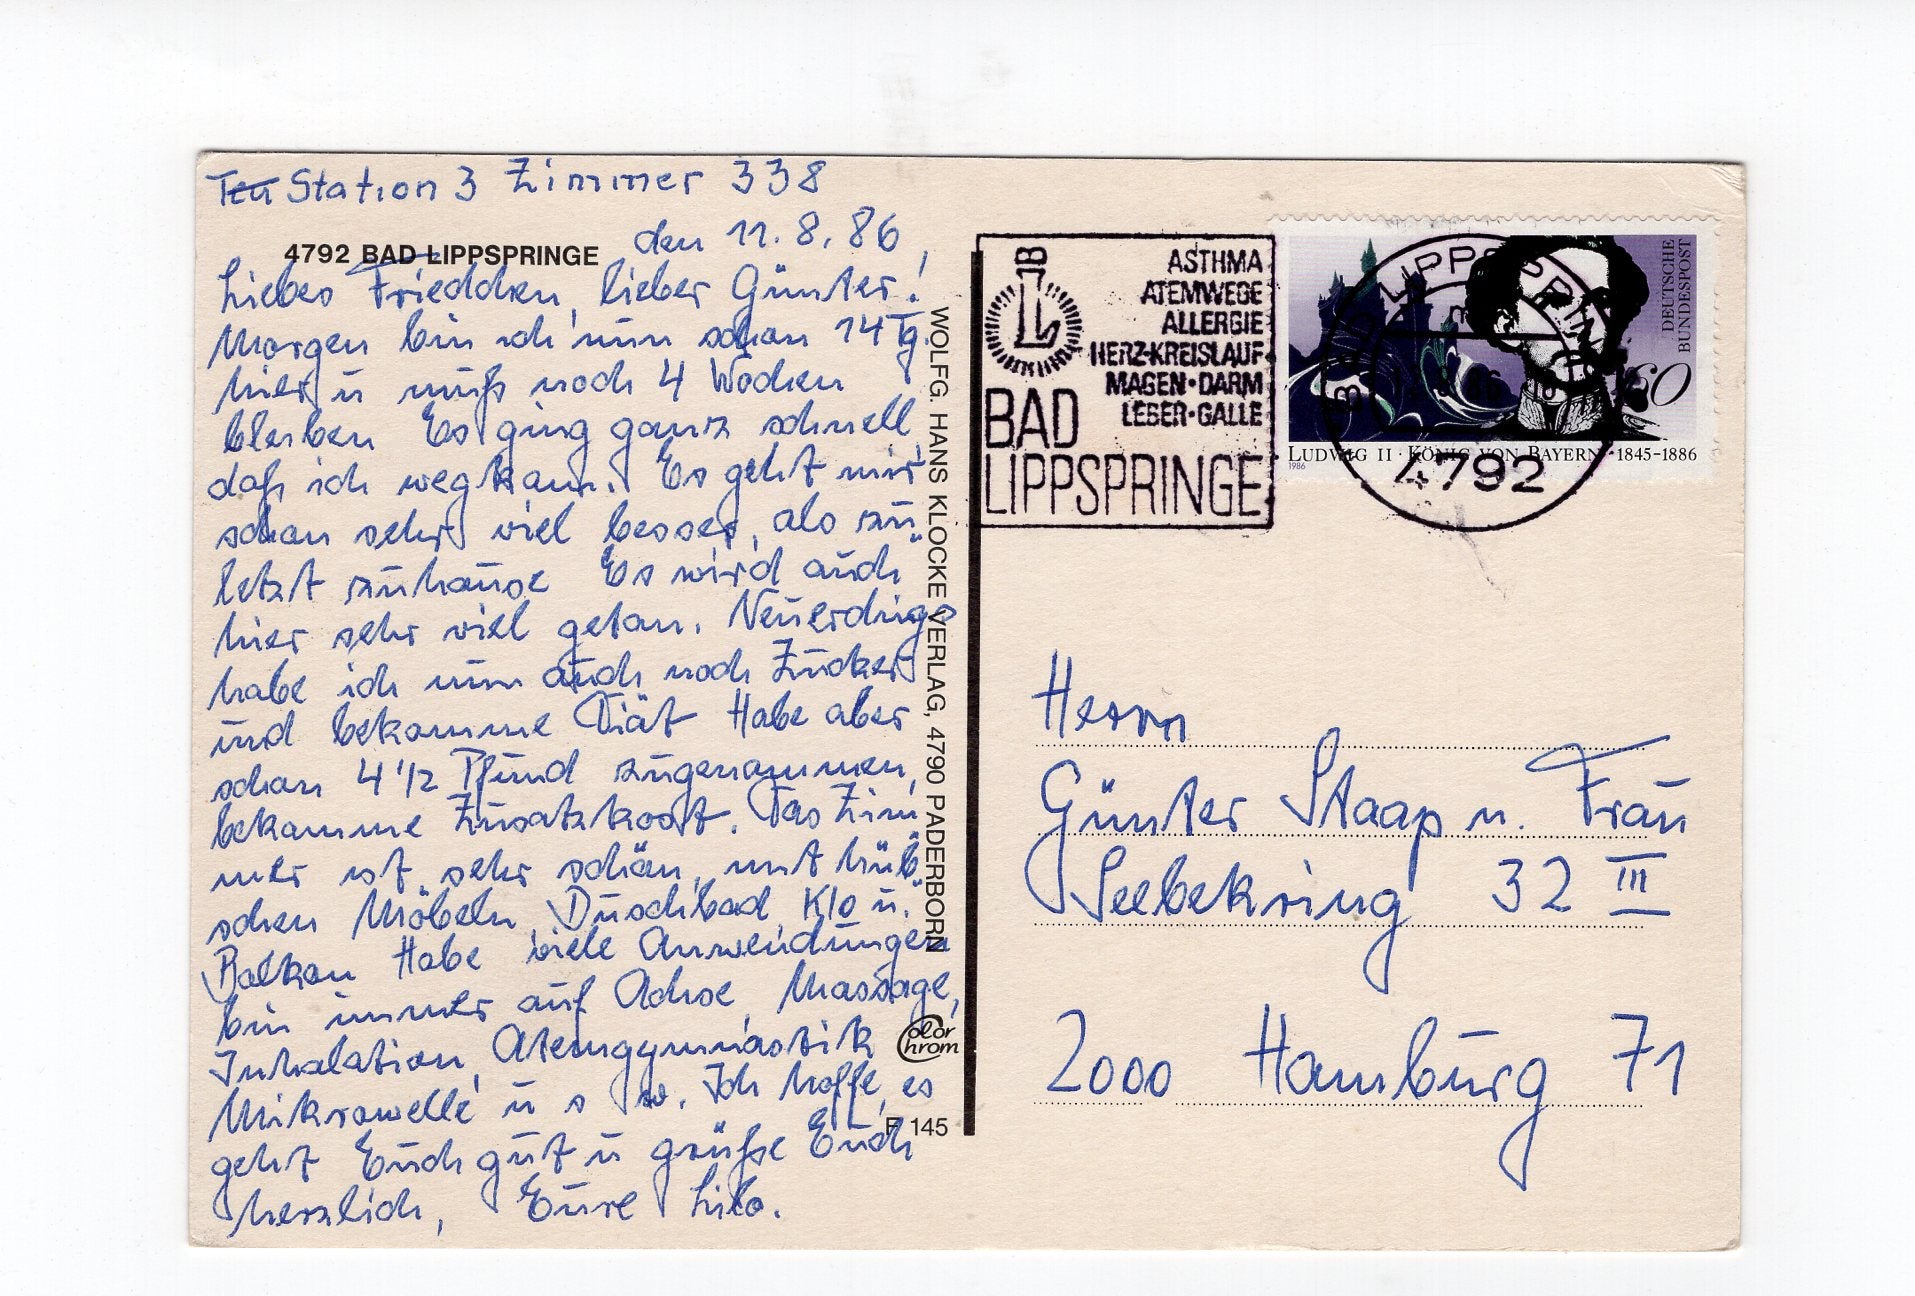 Station 3 Zimmer 338
4792 BAD LIPPSPRINGE
den 11.8.86
Liebes Friedchen, lieber Günter!
Morgen bin ich nun schon 14 Tg.
hier u muß noch 4 Wochen
bleiben Es ging ganz schnell,
daß ich weg kam. Es geht mir
schon sehr viel besser, als zu-
letzt zuhause Es wird auch
hier sehr viel getan. Neuerdings
habe ich nun auch noch Zucker
und bekomme Diät Habe aber
schon 4 1/2 Pfund zugenommen,
bekomme Zusatzkost. Das Zim-
mer ist sehr schön, mit hüb-
schen Möbeln, Duschbad, Klo u.
Balkon Habe viele Anwendungen
bin immer auf Achse, Massage,
Inhalation, Atemgymnastik
Mikrowelle u s w. Ich hoffe, es
geht Euch gut u grüße Euch
herzlich, Eure Lilo.
WOLFG. HANS KLOCKE VERLAG, 4790 PADERBORN
Color Chrom
F 145
ASTHMA
ATEMWEGE
ALLERGIE
HERZ-KREISLAUF
MAGEN·DARM
LEBER·GALLE
BAD
LIPPSPRINGE
LB
DEUTSCHE
BUNDESPOST
60
LUDWIG II · KÖNIG VON BAYERN · 1845-1886
1986
BAD LIPPSPRINGE
4792
Herrn
Günter Staap u. Frau
Seebekring 32 III
2000 Hamburg 71